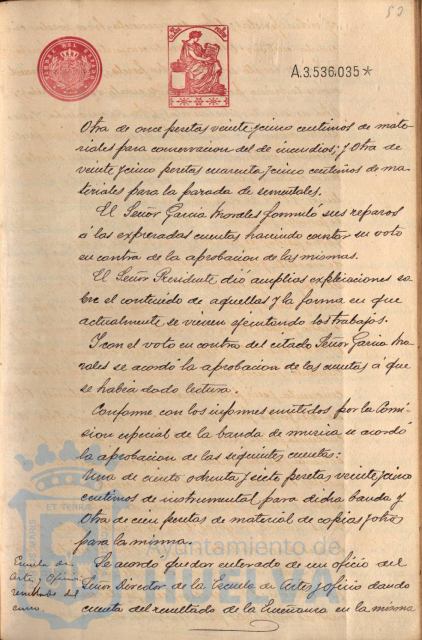 52
A.3.536,035*
Otra de once pesetas veinte y cinco centimos de mate-
riales para conservacion del de incendios; y Otra de
veinte y cinco pesetas cuarenta y cinco centimos de ma-
teriales para la parada de sementales.
El Señor Garcia Morales formuló sus reparos
á las expresadas cuentas haciendo constar su voto
en contra de la aprobacion de las mismas.
El Señor Presidente dió amplias explicaciones so-
bre el contenido de aquellas y la forma en que
actualmente se vienen ejecutando los trabajos.
Y con el voto en contra del citado Señor Garcia Mo-
rales se acordó la aprobacion de las cuentas á que
se habia dado lectura.
Conforme con los informes emitidos por la Comi-
sion especial de la banda de musica se acordó
la aprobacion de las seguientes cuentas:
Una de ciento ochenta y siete pesetas veinte y cinco
centimos de instrumental para dicha banda y
Otra de cien pesetas de material de copias y otros
para la misma.
Escuela de
Artes y Oficios
resultado del
curso.
Se acordó quedar enterado de un oficio del
Señor Director de la Escuela de Artes y Oficios dando
cuenta del resultado de la Enseñanza en la misma
Ayuntamiento de
HUELVA